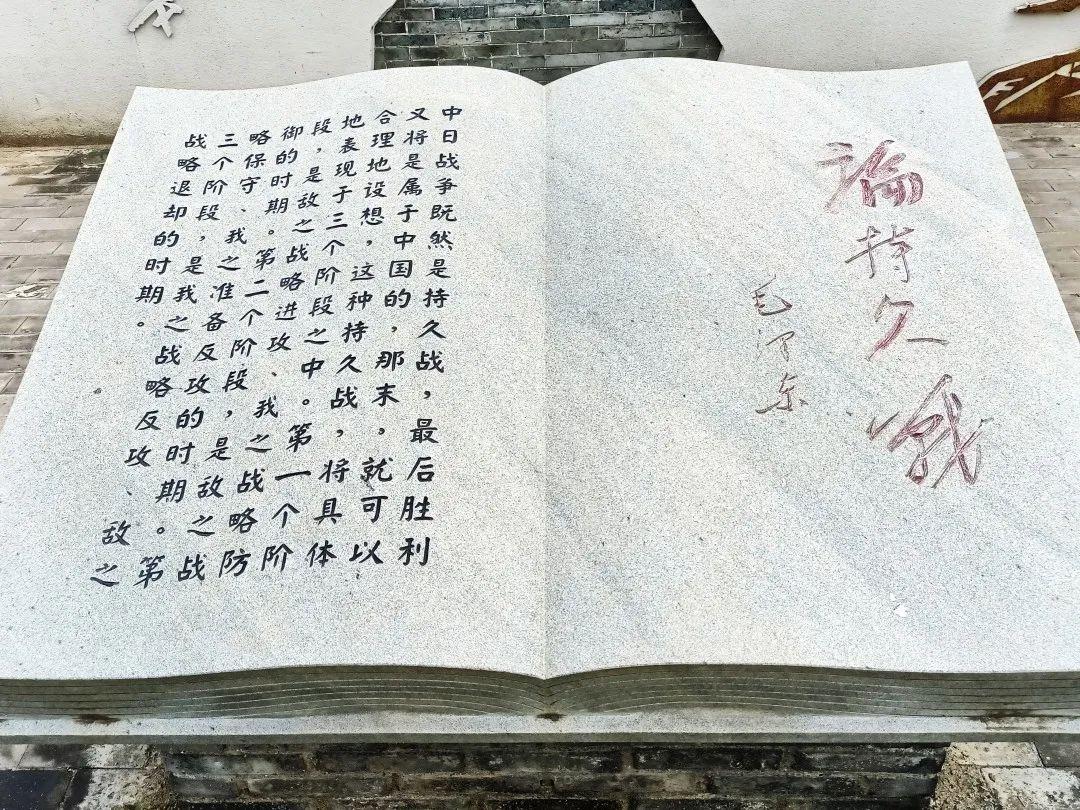 論持久戰
毛泽东
中日战争既然是持久战，最后胜利
又将是属于中国的，那末，就可以
合理地设想，这种持久战，将具体
地表现于三个阶段之中。第一个阶
段，是敌之战略进攻、我之战略防
御的时期。第二个阶段，是敌之战
略保守、我之准备反攻的时期。第
三个阶段，是我之战略反攻、敌之
战略退却的时期。